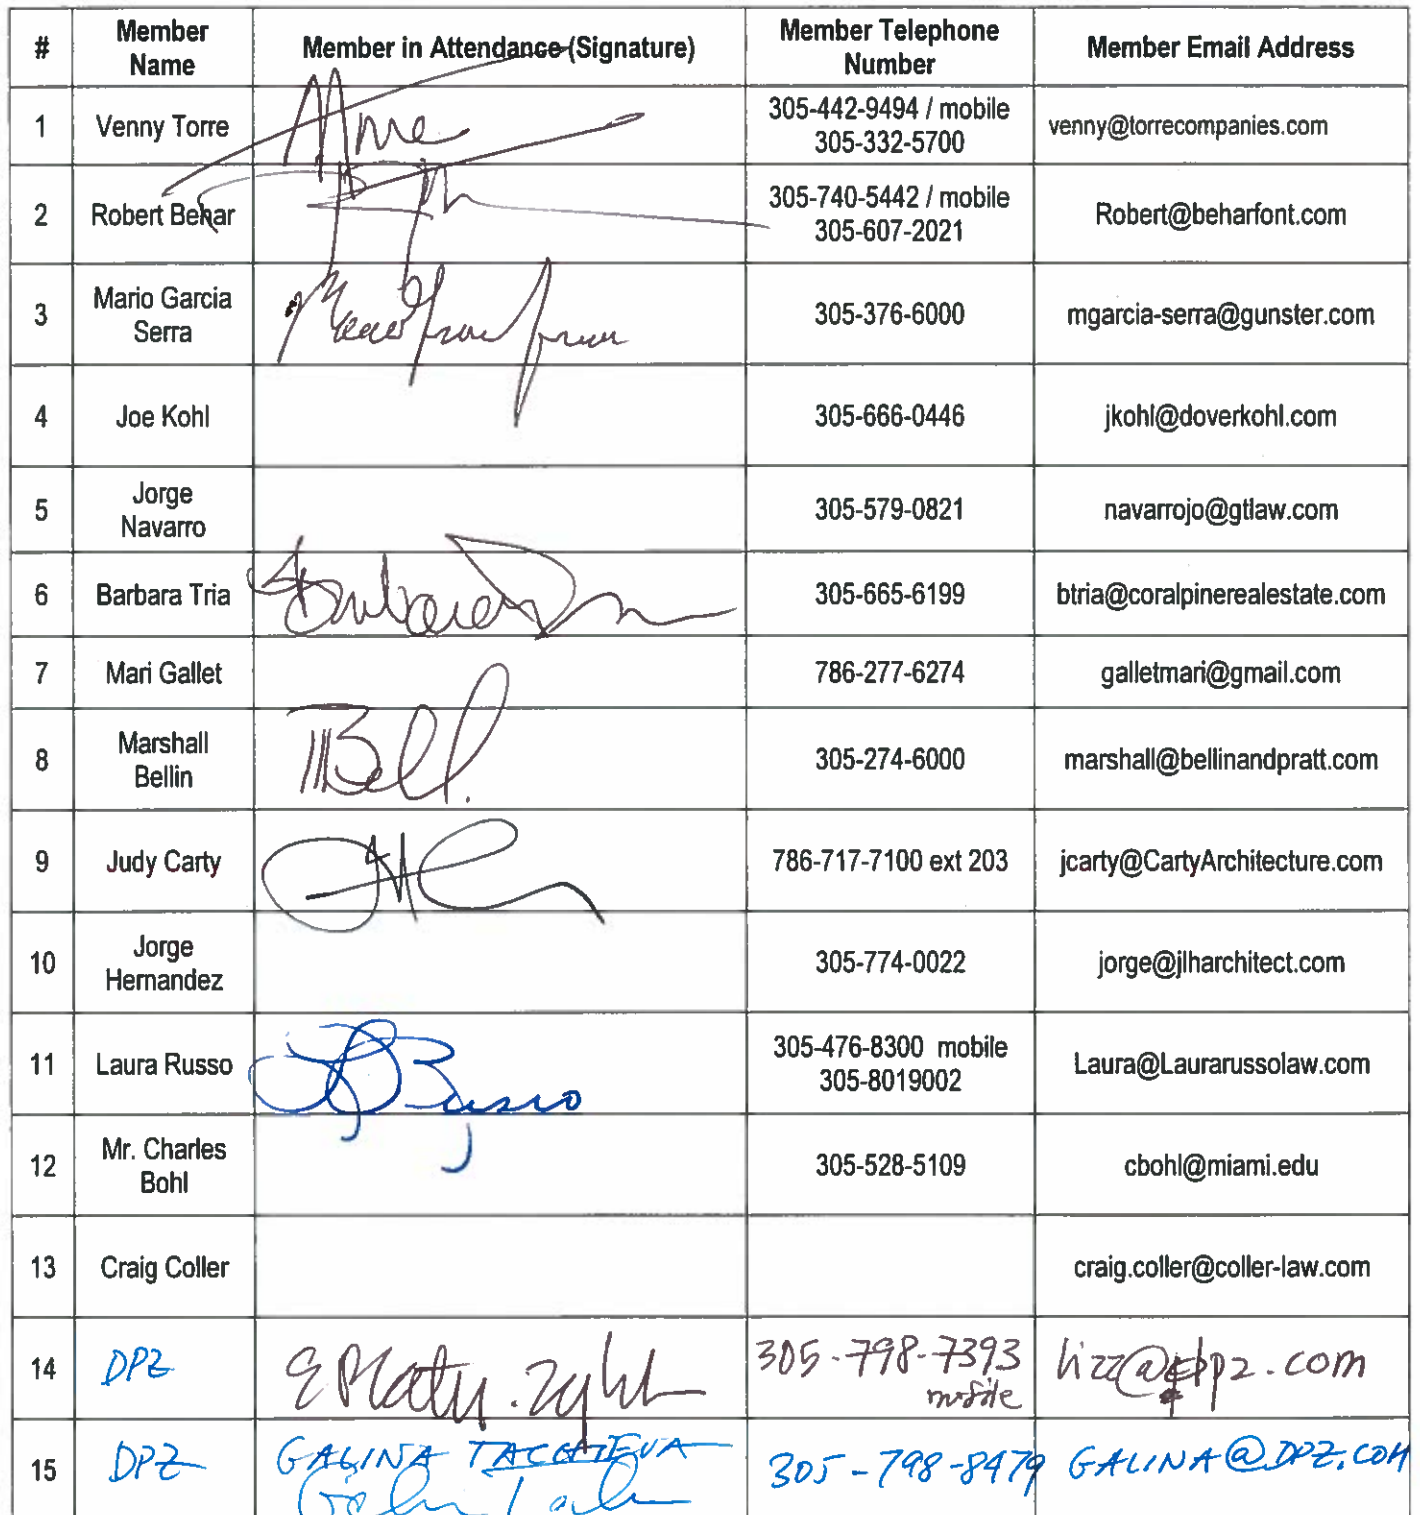 #
Member
Name
Member in Attendance (Signature)
Member Telephone
Number
Member Email Address
1
Venny Torre
305-442-9494 / mobile
305-332-5700
venny@torrecompanies.com
2
Robert Behar
305-740-5442 / mobile
305-607-2021
Robert@beharfont.com
3
Mario Garcia
Serra
305-376-6000
mgarcia-serra@gunster.com
4
Joe Kohl
305-666-0446
jkohl@doverkohl.com
5
Jorge
Navarro
305-579-0821
navarrojo@gtlaw.com
6
Barbara Tria
305-665-6199
btria@coralpinerealestate.com
7
Mari Gallet
786-277-6274
galletmari@gmail.com
8
Marshall
Bellin
305-274-6000
marshall@bellinandpratt.com
9
Judy Carty
786-717-7100 ext 203
jcarty@CartyArchitecture.com
10
Jorge
Hernandez
305-774-0022
jorge@jlharchitect.com
11
Laura Russo
305-476-8300 mobile
305-8019002
Laura@Laurarussolaw.com
12
Mr. Charles
Bohl
305-528-5109
cbohl@miami.edu
13
Craig Coller
craig.coller@coller-law.com
14
DPZ
305-798-7393
mobile
lizz@dpz.com
15
DPZ
GALINA
305-798-8479
GALINA@DPZ.COM